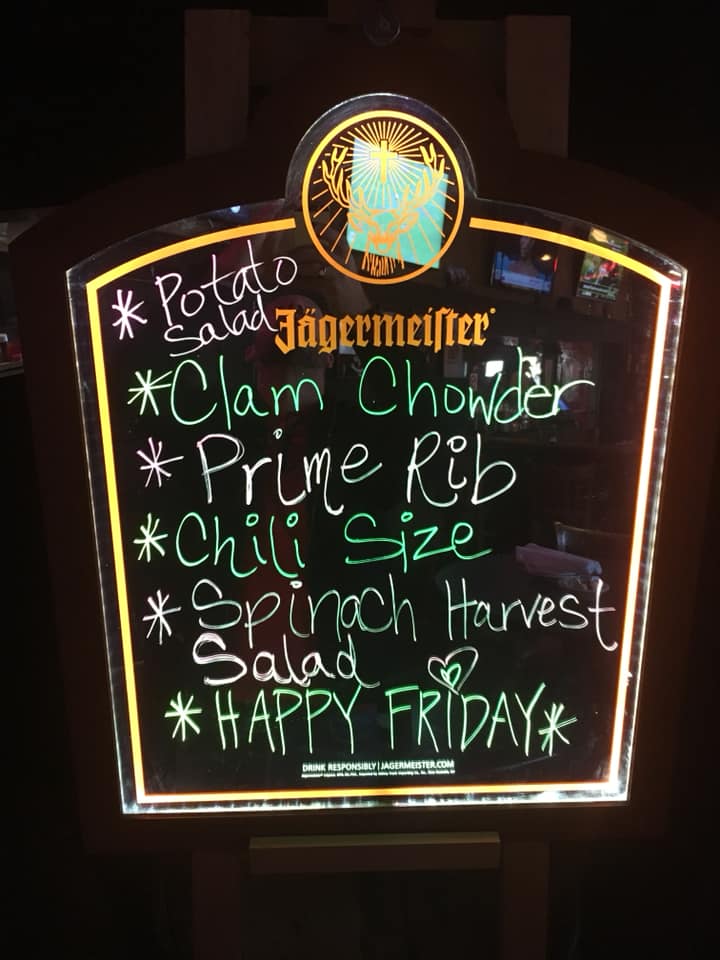 * Potato
Salad
Jägermeister
*Clam Chowder
* Prime Rib
*Chili Size
*Spinach Harvest
Salad
*HAPPY FRIDAY*
DRINK RESPONSIBLY | JAGERMEISTER.COM